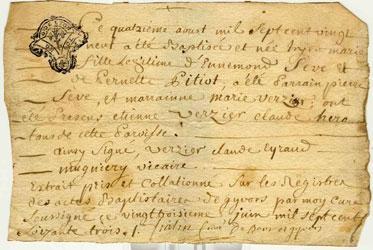 Ce quatorzieme aoust mil sept cent vingt
neuf a été Baptisée et née hyer marie
fille Legitime d'Ennemond Seve et
de Pernette Pitiot, a été Parrain pierre
Seve, et marrainne marie verzier; ont
été Presens etienne verzier claude
tous de cette Paroisse.
ainsy signé, verzier, claude eyraud
muguiery vicaire
Extrait pris et Collationné sur les Registres
des actes Baptistaires de givors par moy Curé
soussigné ce vingt troisieme juin mil sept cent
soixante trois.